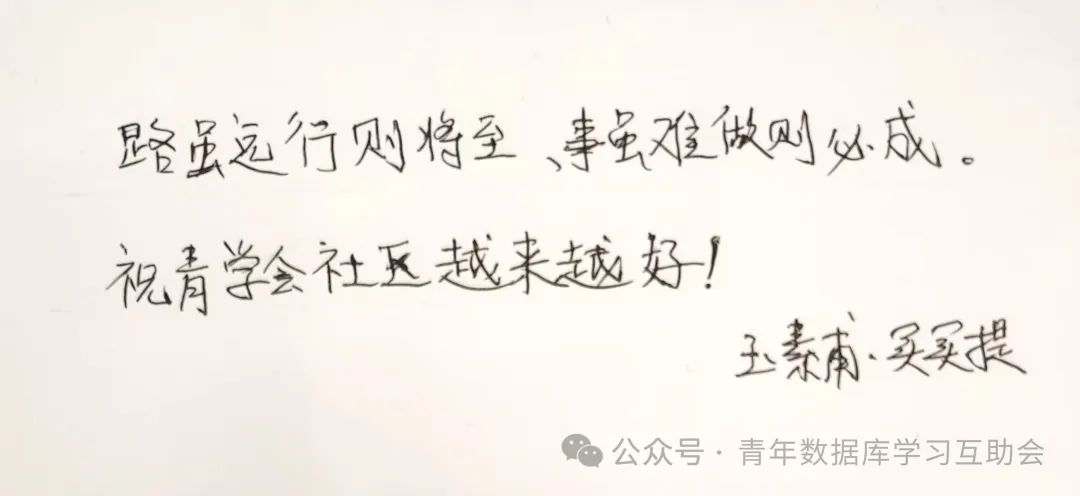 路虽远行则将至、事虽难做则必成。
祝青学会社区越来越好！
玉素甫·买买提
公众号·青年数据库学习互助会